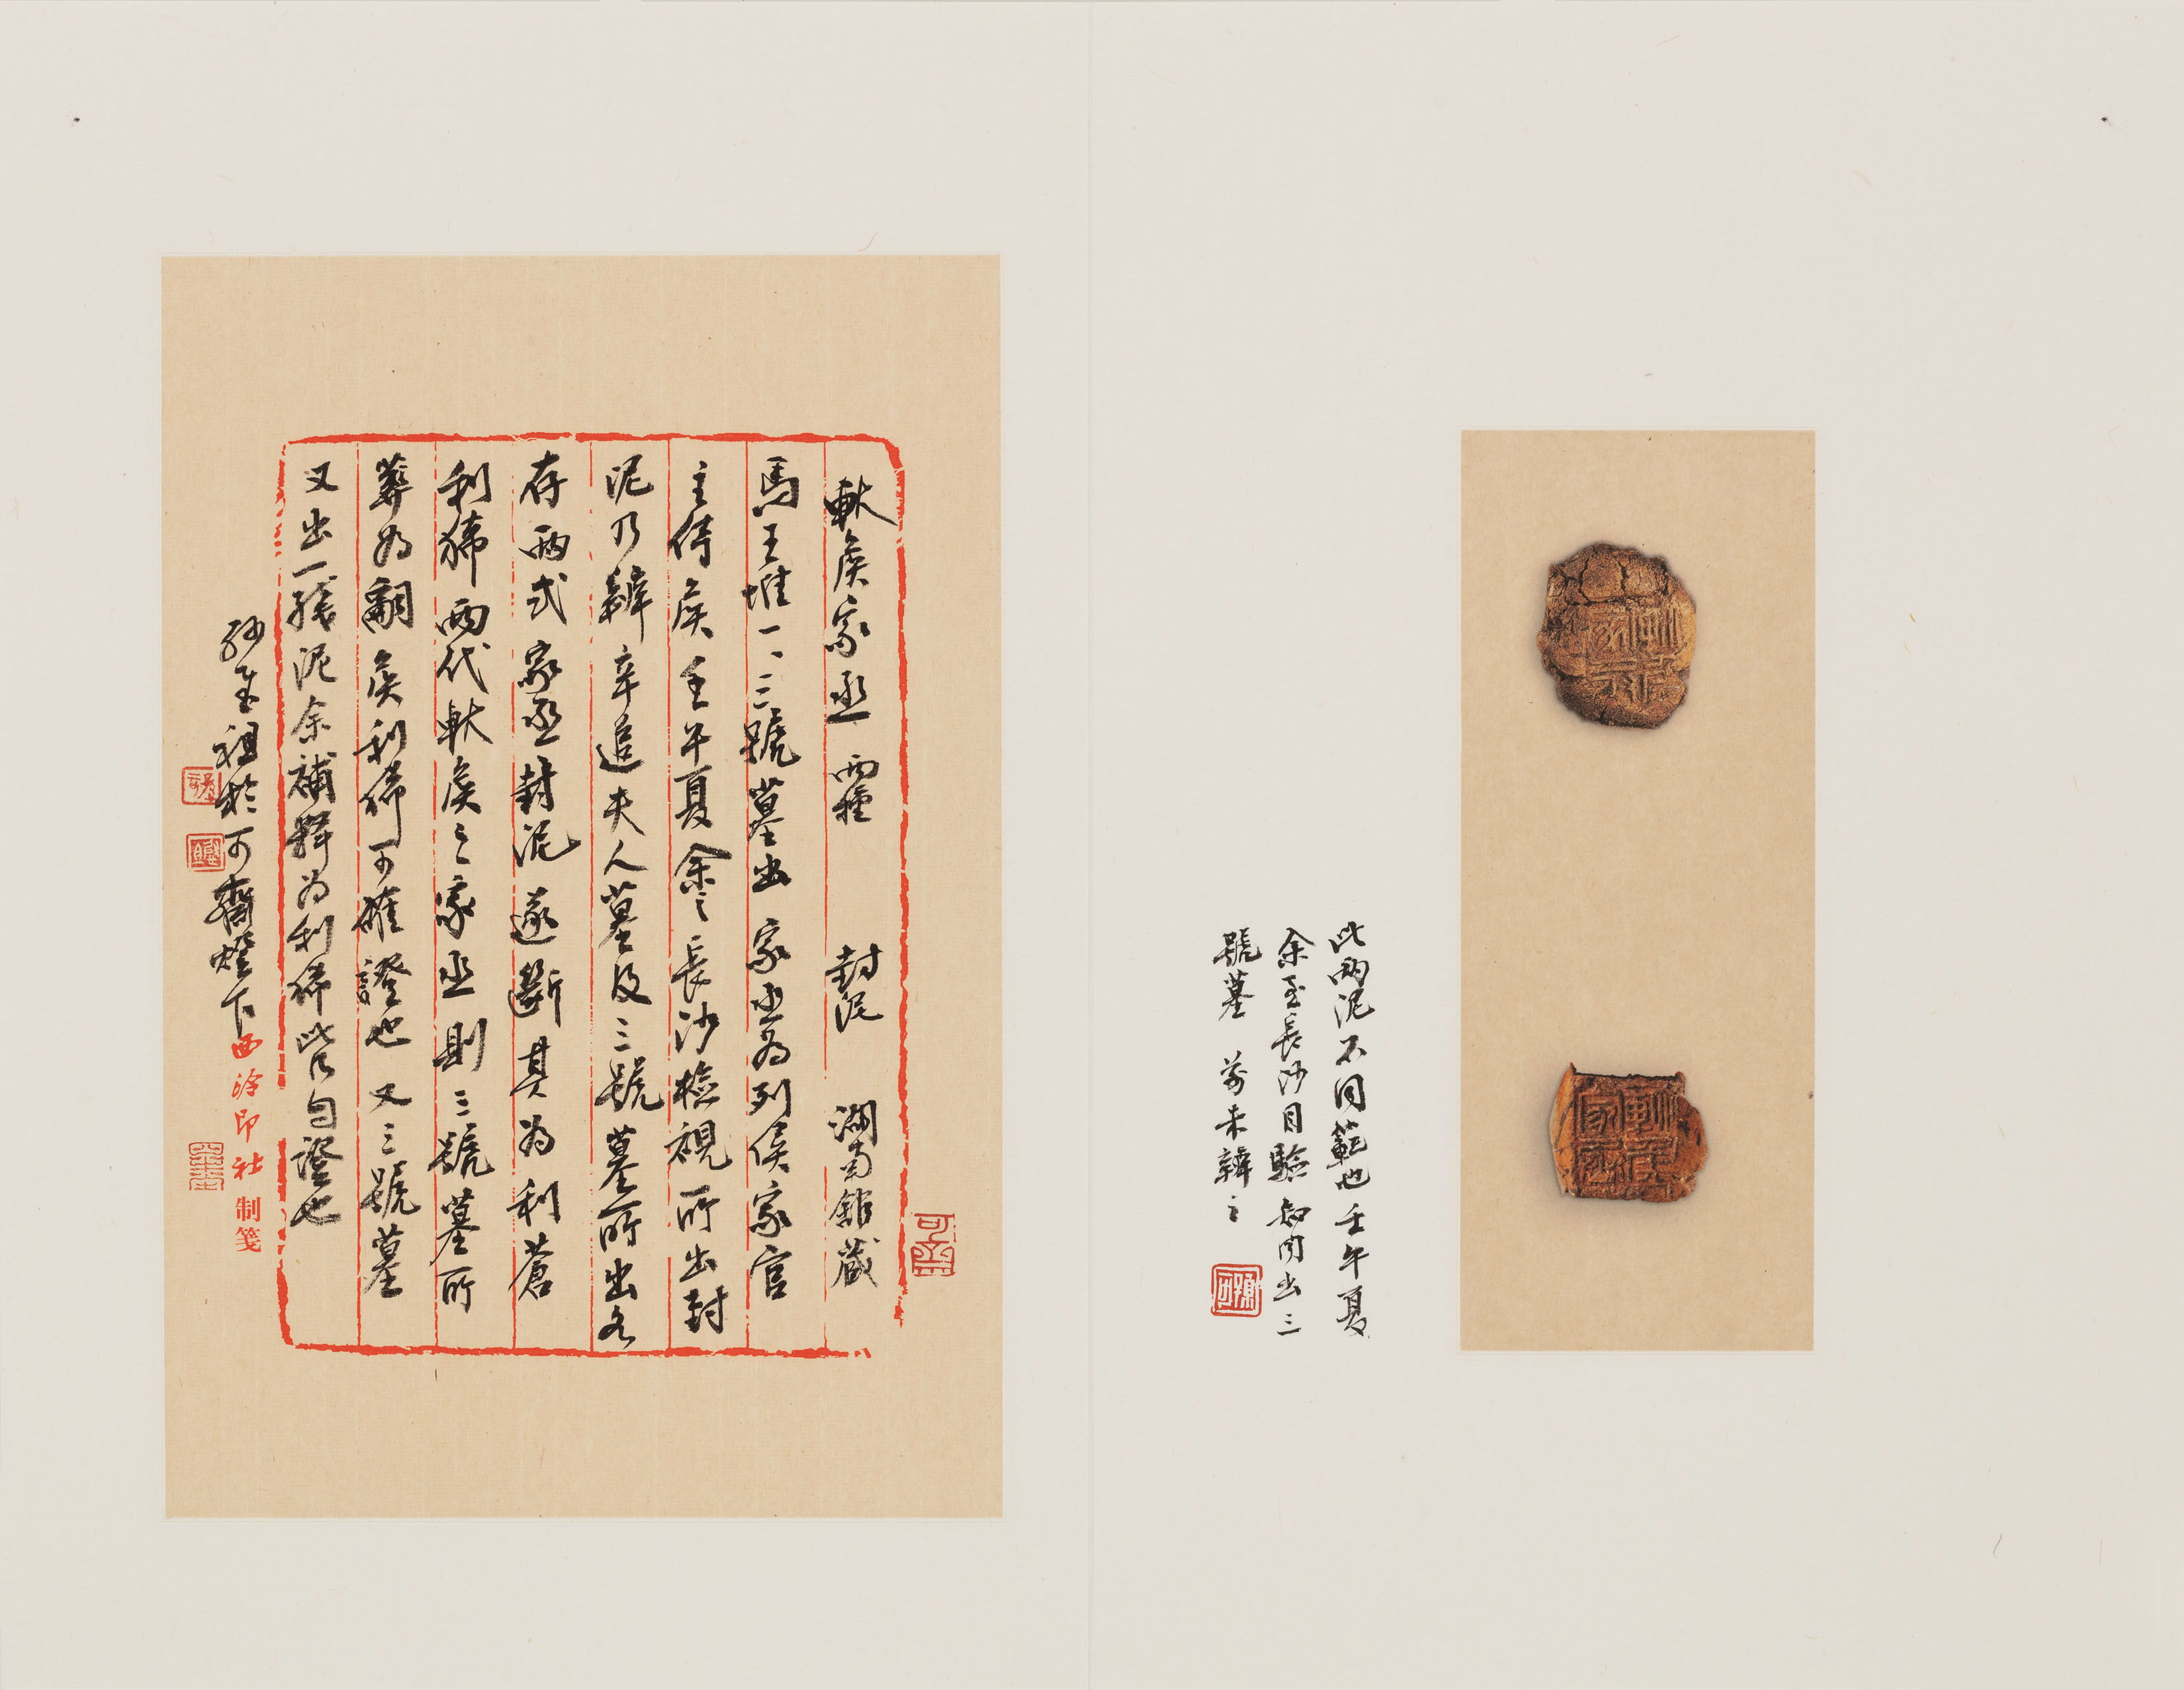 此兩泥不同範也壬午夏
余至長沙目驗知同出三
號墓 前未辨之
軑侯家丞 兩種 封泥 湖南館藏
馬王堆一、三號墓出 家丞為列侯家官
主侍侯 壬午夏余之長沙檢視所出封
泥乃辨辛追夫人墓及三號墓所出各
存兩式家丞封泥遂斷其為利蒼
利豨兩代軑侯之家丞則三號墓所
葬為嗣侯利豨可確證也 又三號墓
又出一殘泥余補釋為利豨此皆自證也
孫慰祖於可齋燈下
西泠印社制箋
軑侯家丞
軑侯家丞
可齋